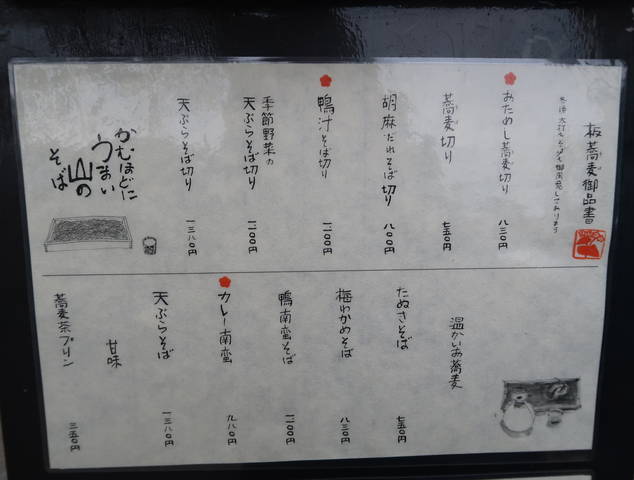 板蕎麦御品書
おためし蕎麦切り 八三〇円
蕎麦切り 七五〇円
胡麻だれそば切り 八〇〇円
鴨汁そば切り 一二〇〇円
季節野菜の
天ぷらそば切り 一二〇〇円
天ぷらそば切り 一三八〇円
かむほどに
うまい
山の
そば
温かいお蕎麦
たぬきそば 七五〇円
梅わかめそば 八三〇円
鴨南蛮そば 一二〇〇円
カレー南蛮 九八〇円
天ぷらそば 一三八〇円
甘味
蕎麦茶プリン 三五〇円